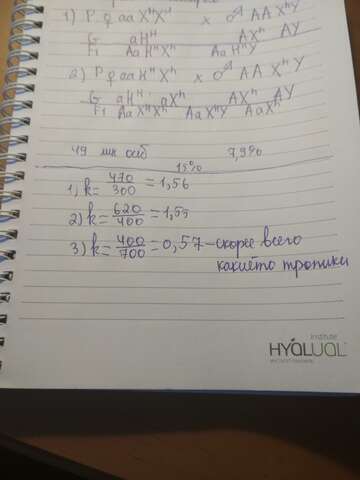 1) P ♀ aa XᴴXᴴ x ♂ AA XʰY
G aHᴴ AXʰ AY
F₁ AaHᴴXʰ AaHᴴY
2) P ♀ aa HᴴXʰ x ♂ AA XʰY
G aHᴴ aXʰ AXʰ AY
F₁ AaXᴴXʰ AaXᴴY AaXʰ
49 мн особ 7,9%
15%
1) k = 470/300 = 1,56
2) k = 620/400 = 1,55
3) k = 400/700 = 0,57 - скорее всего
какиёто тропики
institute
HYALUAL